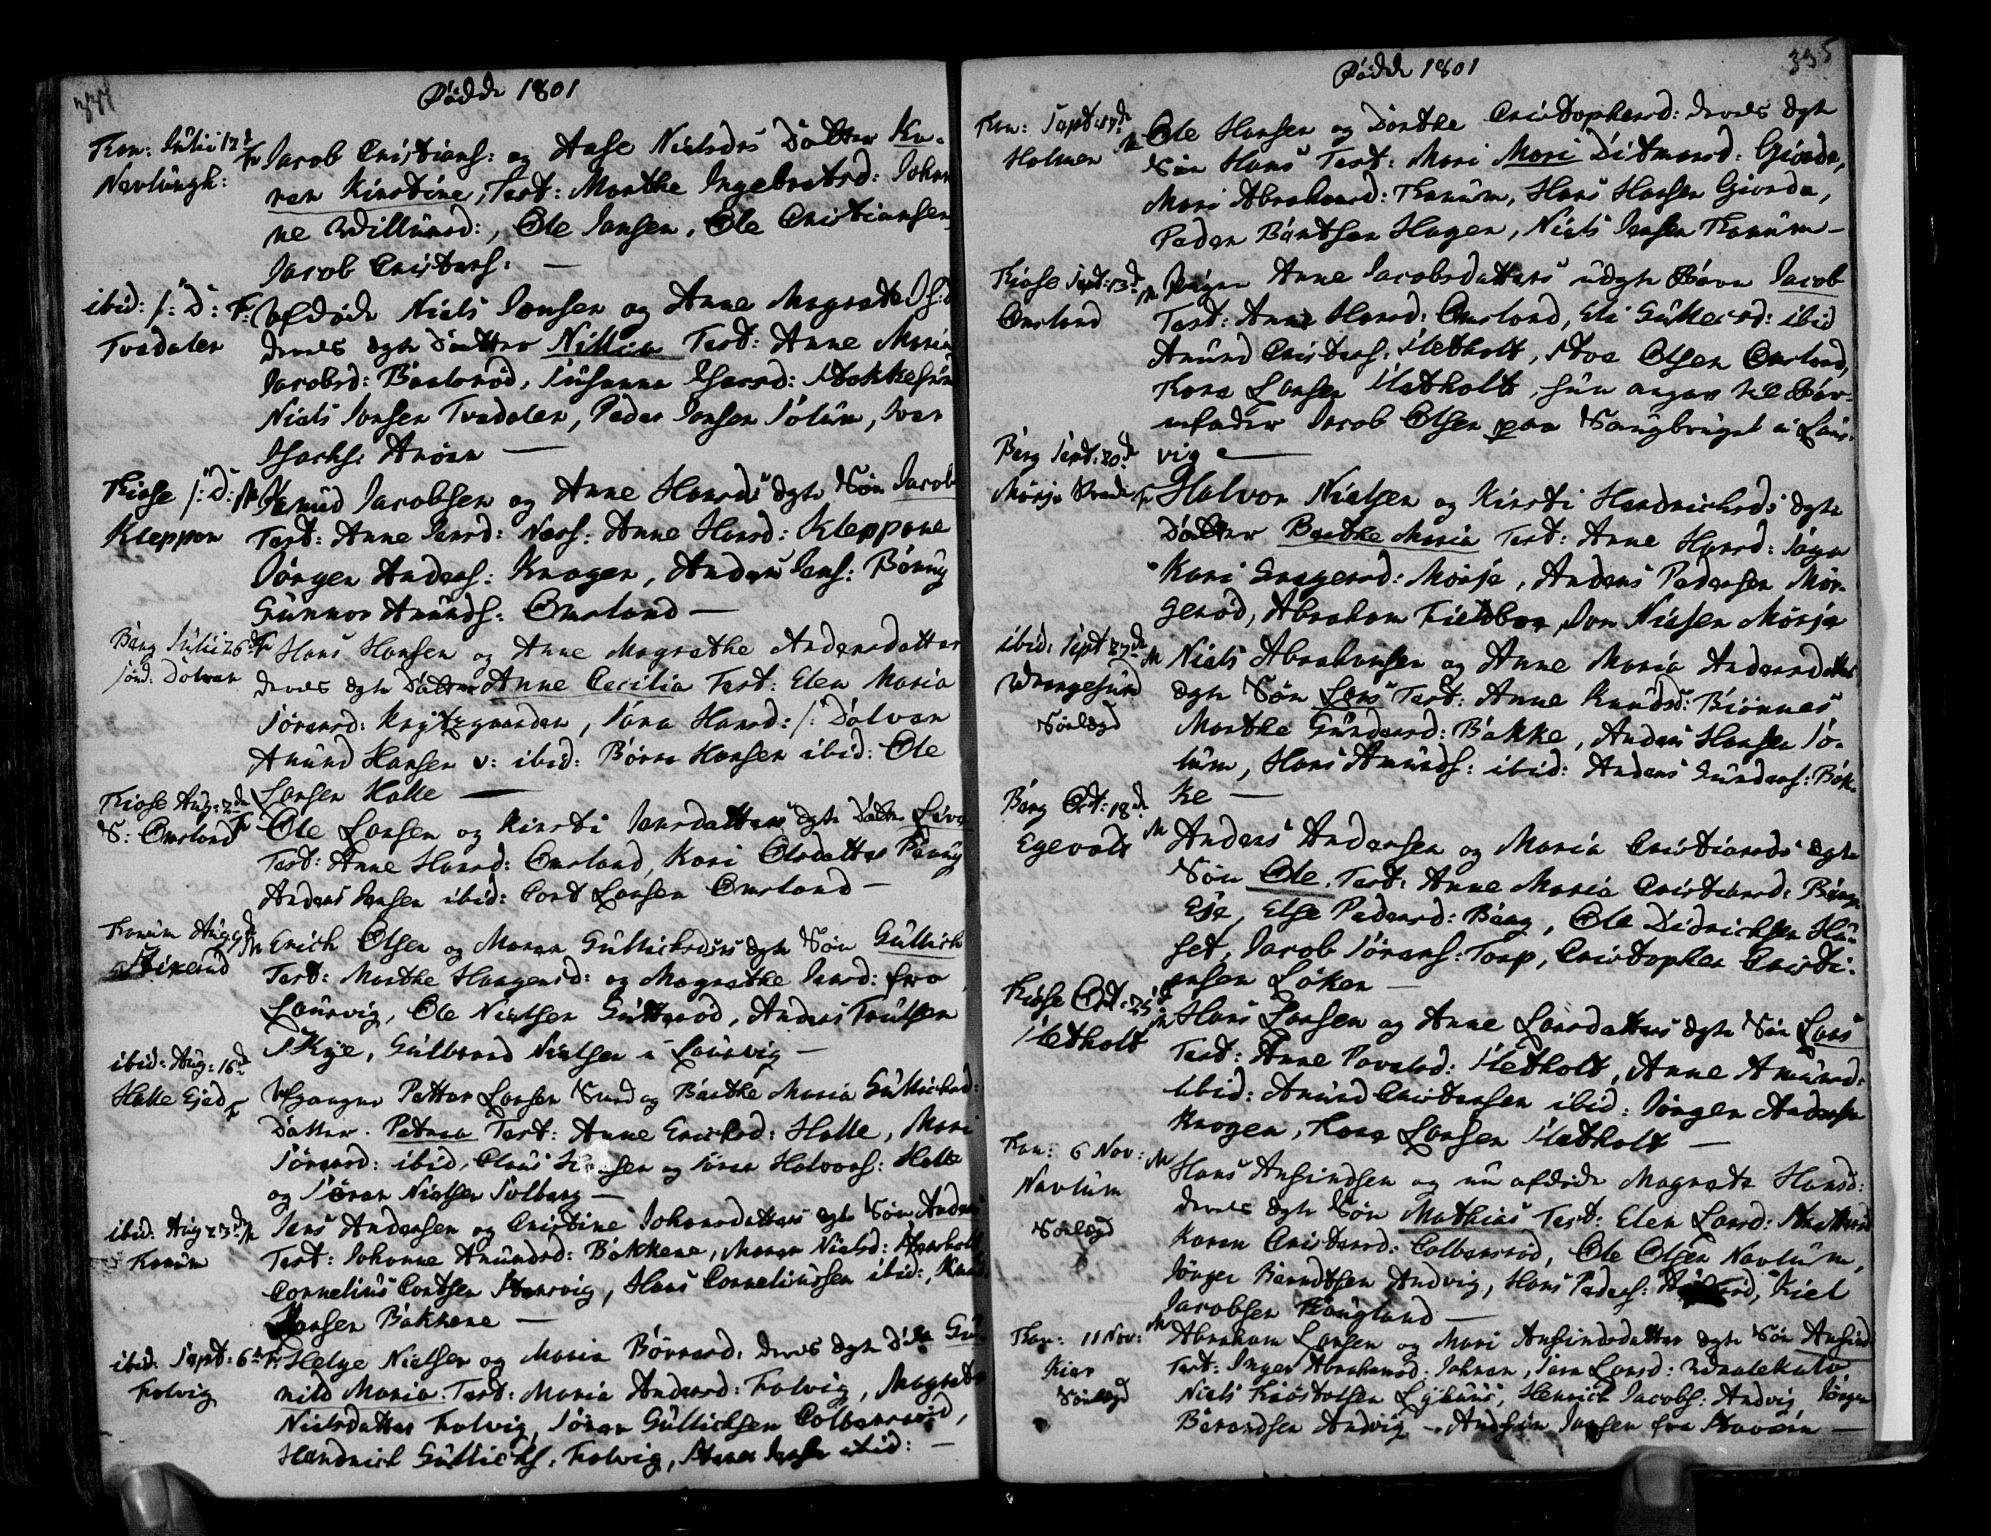 334
Fødde 1801
Tan: Julii 12d
Navlungh:
Fr Jacob Cristians: og Aase Nielsdrs Datter Ka-
ren Kirstine, Test: Marthe Ingebretsd: Johan
ne Willumsd:, Ole Jansen, Ole Cristiansen
Jacob Cristens: —
ibid: s: D: Fr:
Tvedalen
afdøde Niels Jonsen og Anne Magrete
deres ægte Datter Nillia Test: Anne Maria
Jacobsd: Susanna Isacsd: Stokkesun
Niels Jonsen Tvedalen, Peder Jonsen Solum, Iver
Isachs: Arøen —
Kiose s: D: M
Kleppen
Amund Jacobsen og Anne Hansds ægte Søn Jacob
Test: Anne Jansd: Næss: Anne Hansd: Kleppene
Jørgen Anders: Krogen, Anders Jans: Bønug
Gunnor Amunds: Omsland —
Berg Julii 26d Fr
sønd: Dolven
Hans Hansen og Anne Magrethe Andersdatter
deres ægte Datter Anne Cecilia Test: Elen Maria
Sørensd: Krytzgaarden, Sara Hansd: s: Dolven
Amund Hansen v: ibid: Børre Hansen ibid: Ole
Larsen Halle —
Kiose Aug: 2d
S: Omsland Fr
Ole Larsen og Kirsti Jansdatters ægte Datter Live
Test: Anne Hansd: Omsland, Kari Olsdatter Bønug
Anders Jensen ibid: Cort Larsen Omsland —
Tanum Aug: 9d
M
Erich Olsen og Maren Gullichsdrs ægte Søn Gullich
Test: Marthe Haagensd: og Magrethe Jansd: fra
Laurvig, Ole Nielsen Gutterød, Anders Truelsen
Skye, Gulbrand Nielsen i Laurvig —
ibid: Aug: 16d
Halle Ejed Fr
Petter Larsen Sund og Barthe Maria Gullichsd:
Datter. Petrea Test: Anne Ericksd: Halle, Mari
Sørensd: ibid, Claus Hansen og Sören Halvors: Halle
og Sören Nielsen Solberg —
ibid: Aug 23d M
Tanum
Jens Andersen og Cristine Johansdatters ægte Søn Anders
Test: Johanne Amundsd: Bakkene, Maren Nielsd:
Cornelius Cortsen Hansvig, Hans Corneliussen ibid:, Knud
Hansen Bakkene —
ibid: Sept: 6d Fr:
Falvig
Helge Nielsen og Maria Børresd: deres ægte Dr Gu-
nild Maria. Test: Maria Andersd: Falvig, Magrete
Nielsdatter Falvig, Sören Gullichsen Colbensrød,
Hendrich Gullichs: Falvig, ibid: —
335
Fødde 1801
Tan: Sept: 13d
Holmen M
Ole Hansen og Dorthe Cristophersd: deres ægte
Søn Hans Test: Mari Mari Ditmarsd: Giorde,
Mari Abrahamsd: Tanum, Hans Hansen Giorde,
Peder Bentsen Hagen, Niels Jansen Tanum —
Kiose Sept: 13d
Omsland M
Pigen Anne Jacobsdatters uægte Barn Jacob
Test: Anne Hansd: Omsland, Eli Gullicsd: ibid
Amund Cristens: Sletholt, Stoe Olsen Omsland,
Tore Larsen Sletholt, hun angav til Bar-
nefader Jacob Olsen paa Saugbruget i Laur-
vig —
Berg Sept: 20d
Mørje Fr
Halvor Nielsen og Kirsti Hendrichsds ægte
Datter Barthe Maria Test: Anne Hansd:
Kari Gregersd: Mørje, Anders Pedersen Mør-
gerød, Abraham Fieldboe, Jon Nielsen Mørje
ibid: Sept 27d M
Wrangesund
Sønlægd
Niels Abrahamsen og Anne Maria Andersdatters
ægte Søn Lars Test: Anne Knudsd: Biønnes
Marthe Gundersd: Bakke, Anders Hansen So-
lum, Hans Amunds: ibid: Anders Gunders: Bak-
ke —
Berg Oct: 18d
Egevold M
Anders Andersen og Maria Cristiansds ægte
Søn Ole. Test: Anne Maria Cristiansd: Berg-
Eje, Else Pedersd: Berg, Ole Didrichsen Hu-
set, Jacob Sørens: Torp, Cristopher Cristi-
ansen Løken —
Kiose Oct: 25d
Sletholt M
Hans Larsen og Anne Larsdatters ægte Søn Lars
Test: Anne Povelsd: Sletholt, Anne Amundsd:
ibid: Amund Cristensen ibid: Jørgen Andersen
Krogen, Tore Larsen Sletholt —
Tan: 6 Nov: M
Navlum
Sønlægd
Hans Ansindsen og nu afdøde Magrete Hansd:
deres ægte Søn Mathias Test: Elen Larsd:
Karen Cristensd: Colbensrød, Ole Olsen Navlum,
Jørgen Berndtsen Andvig, Hans Peders: Kiel
Jacobsen Haugland —
Tan: 11 Nov: M
Kiær
Sønlægd
Abraham Larsen og Mari Ansindsdatter ægte Søn Ansind
Test: Inger Abrahamsd: Johnen, Sara Larsd:
Niels Kiøstolsen Lyhuus, Henrich Jacobs: Andvig, Jørgen
Berendsen Andvig —. Andsin Jansen fra Stavern —